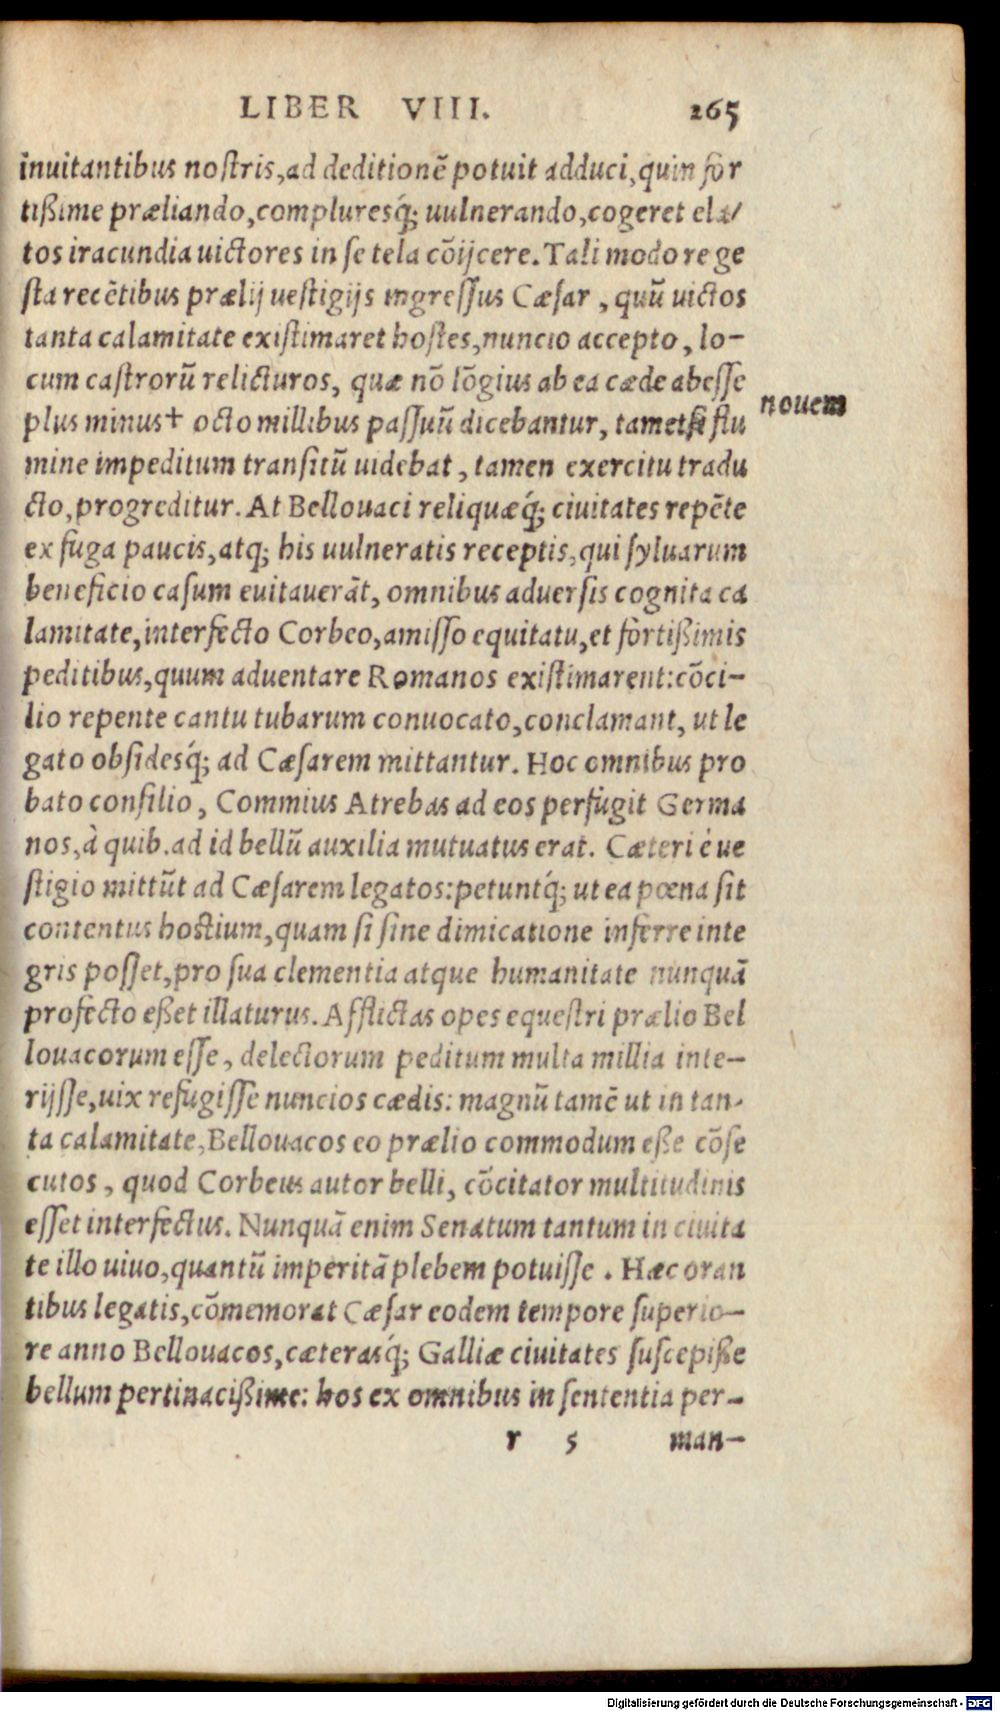 LIBER VIII. 265
inuitantibus nostris,ad deditionē potuit adduci,quin for
tißime præliando,compluresq́; uulnerando,cogeret ela/
tos iracundia uictores in se tela cōijcere. Tali modo re ge
sta recētibus prælij uestigijs ingressus Cæsar, quū uictos
tanta calamitate existimaret hostes,nuncio accepto, lo-
cum castrorū relicturos, quæ nō lōgius ab ea cæde abesse
plus minus† octo millibus passuū dicebantur, tametsi flu
novem
mine impeditum transitū uidebat, tamen exercitu tradu
cto,progreditur. At Bellouaci reliquæq́; ciuitates repēte
ex fuga paucis,atq; his uulneratis receptis,qui syluarum
beneficio casum euitauerāt, omnibus aduersis cognita ca
lamitate,interfecto Corbeo,amisso equitatu,et fortißimis
peditibus,quum aduentare Romanos existimarent:cōci-
lio repente cantu tubarum conuocato,conclamant, ut le
gato obsidesq́; ad Cæsarem mittantur. Hoc omnibus pro
bato consilio, Commius Atrebas ad eos perfugit Germa
nos,à quib.ad id bellū auxilia mutuatus erat. Cæteri è ue
stigio mittūt ad Cæsarem legatos:petuntq́; ut ea pœna sit
contentus hostium,quam si sine dimicatione inferre inte
gris posset,pro sua clementia atque humanitate nunquā
profecto eßet illaturus. Afflictas opes equestri prælio Bel
louacorum esse, delectorum peditum multa millia inte-
rijsse,uix refugisse nuncios cædis: magnū tamē ut in tan-
ta calamitate,Bellouacos eo prælio commodum eße cōse
cutos, quod Corbeus autor belli, cōcitator multitudinis
esset interfectus. Nunquā enim Senatum tantum in ciuita
te illo uiuo,quantū imperitā plebem potuisse. Hæc oran
tibus legatis,cōmemorat Cæsar eodem tempore superio-
re anno Bellouacos,cæterasq́; Galliæ ciuitates suscepiße
bellum pertinacißime: hos ex omnibus in sententia per-
r 5 man-
Digitalisierung gefördert durch die Deutsche Forschungsgemeinschaft - DFG